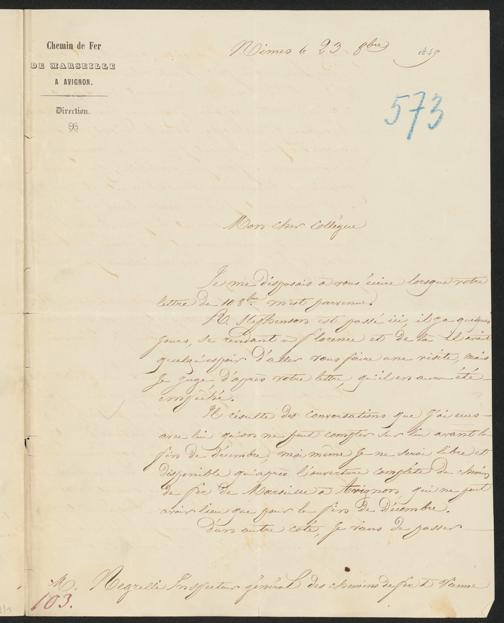 Chemin de Fer
DE MARSEILLE
A AVIGNON.
Direction.
Nimes le 23 8bre 1847
573
Mon cher collègue
Je me disposais à vous écrire lorsque votre
lettre de 10 8bre m'est parvenue.
M. Stephenson est passé ici, il y a quelques
jours, se rendant à florence et de là. Il avait
quelqu'espoir d'aller vous faire une visite, mais
Je juge d'après votre lettre, qu'il en aura été
empêché.
Il résulte des conversations que j'ai eues
avec lui qu'on ne peut compter sur lui avant la
fin de décembre; moi même je ne serai libre et
disponible qu'après l'ouverture complète du chemin
de fer de Marseille à Avignon qui ne peut
avoir lieu que pour la fin de Décembre.
D'un autre côté, je viens de passer
M. Negrelli Inspecteur général des chemins de fer à Vienne
103.